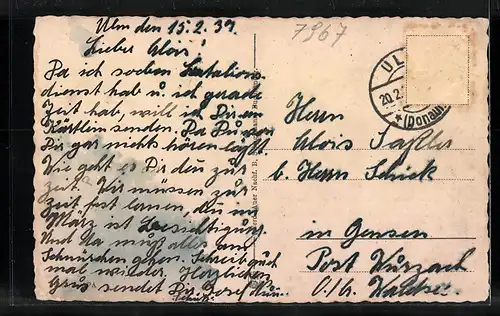 Ulm den 15.2.39
Lieber Alois!
Da ich soeben Stations
dienst hab u. ich gerade
Zeit hab, will ich Dir ein
Kärtlein senden. Da Du von
Dir gar nichts hören läßt.
Wie geht es Dir den zur
Zeit. Wir müssen zur
Zeit fest lernen, den im
März ist Besichtigung.
Und da muß alles am
Schnürchen gehen. Schreib auch
mal wieder. Herzlichen
Gruß sendet Dir Josef
Schütz.
7967
UL
20.2.
*(Donau)
Herrn
Alois
b. Herrn Schick
in Gensen
Post Wurzach
O/A. Waldsee.